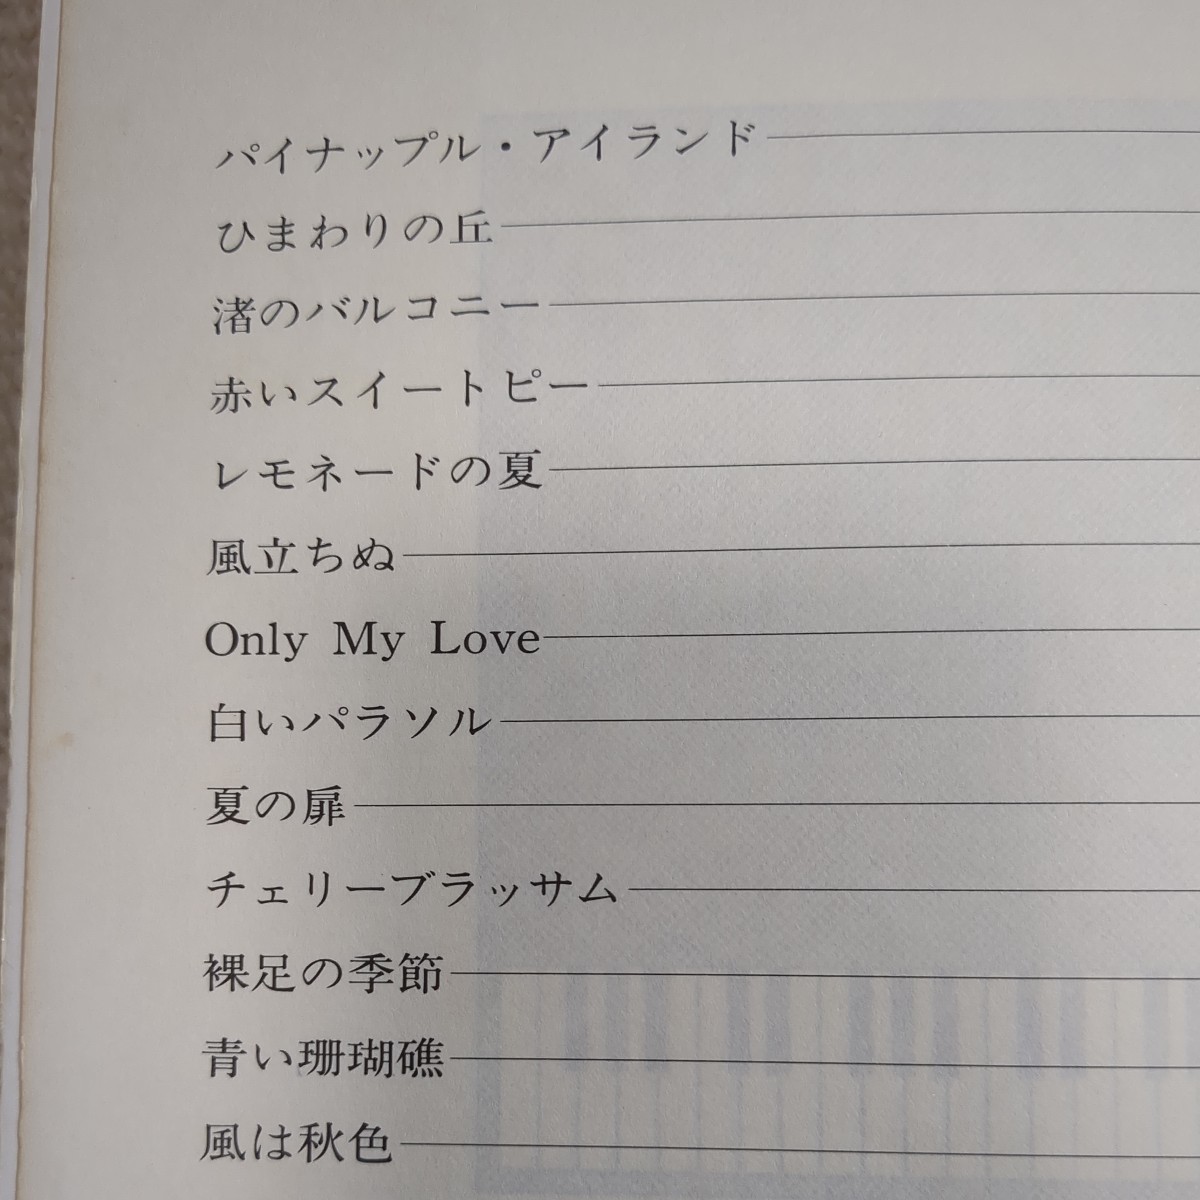 パイナップル・アイランド
ひまわりの丘
渚のバルコニー
赤いスイートピー
レモネードの夏
風立ちぬ
Only My Love
白いパラソル
夏の扉
チェリーブラッサム
裸足の季節
青い珊瑚礁
風は秋色